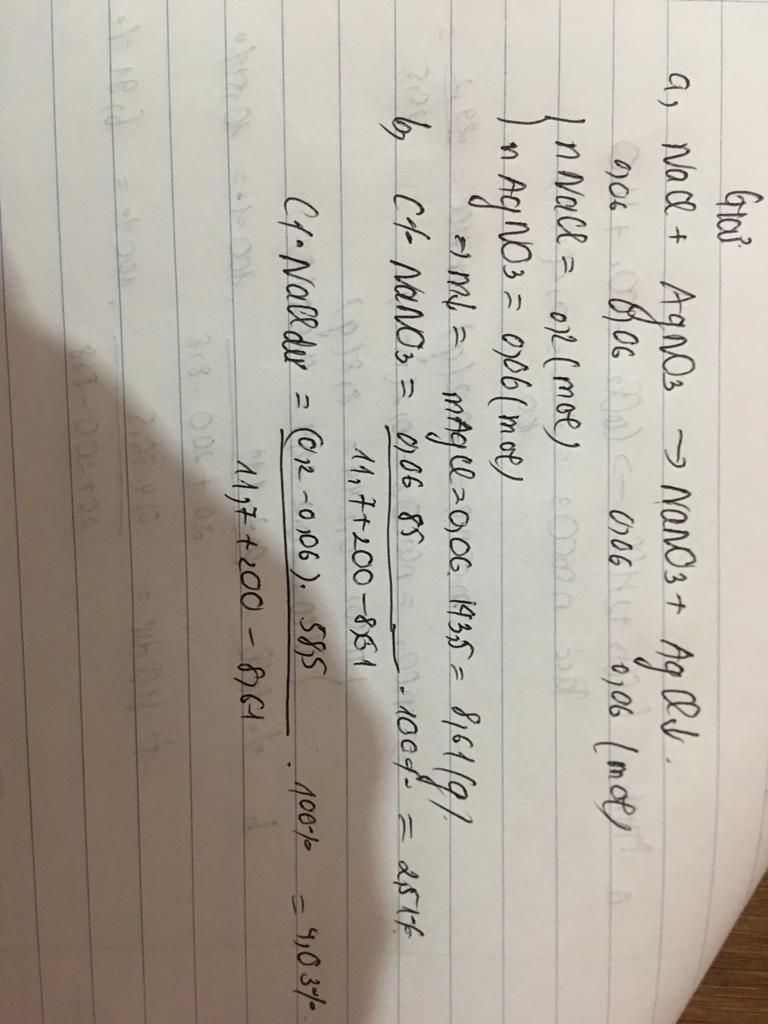 Giải
a, NaCl + AgNO3 → NaNO3 + AgCl↓.
0,06 0,06 0,06 0,06 (mol)
{ nNaCl = 0,2 (mol)
n AgNO3 = 0,06 (mol)
=> m↓ = mAgCl = 0,06. 143,5 = 8,61 (g)
b, C% NaNO3 = 0,06 85 . 100% = 2,51%
11,7 + 200 - 8,61
C% NaCl dư = (0,2 - 0,06). 58,5 . 100% = 4,03%.
11,7 + 200 - 8,61